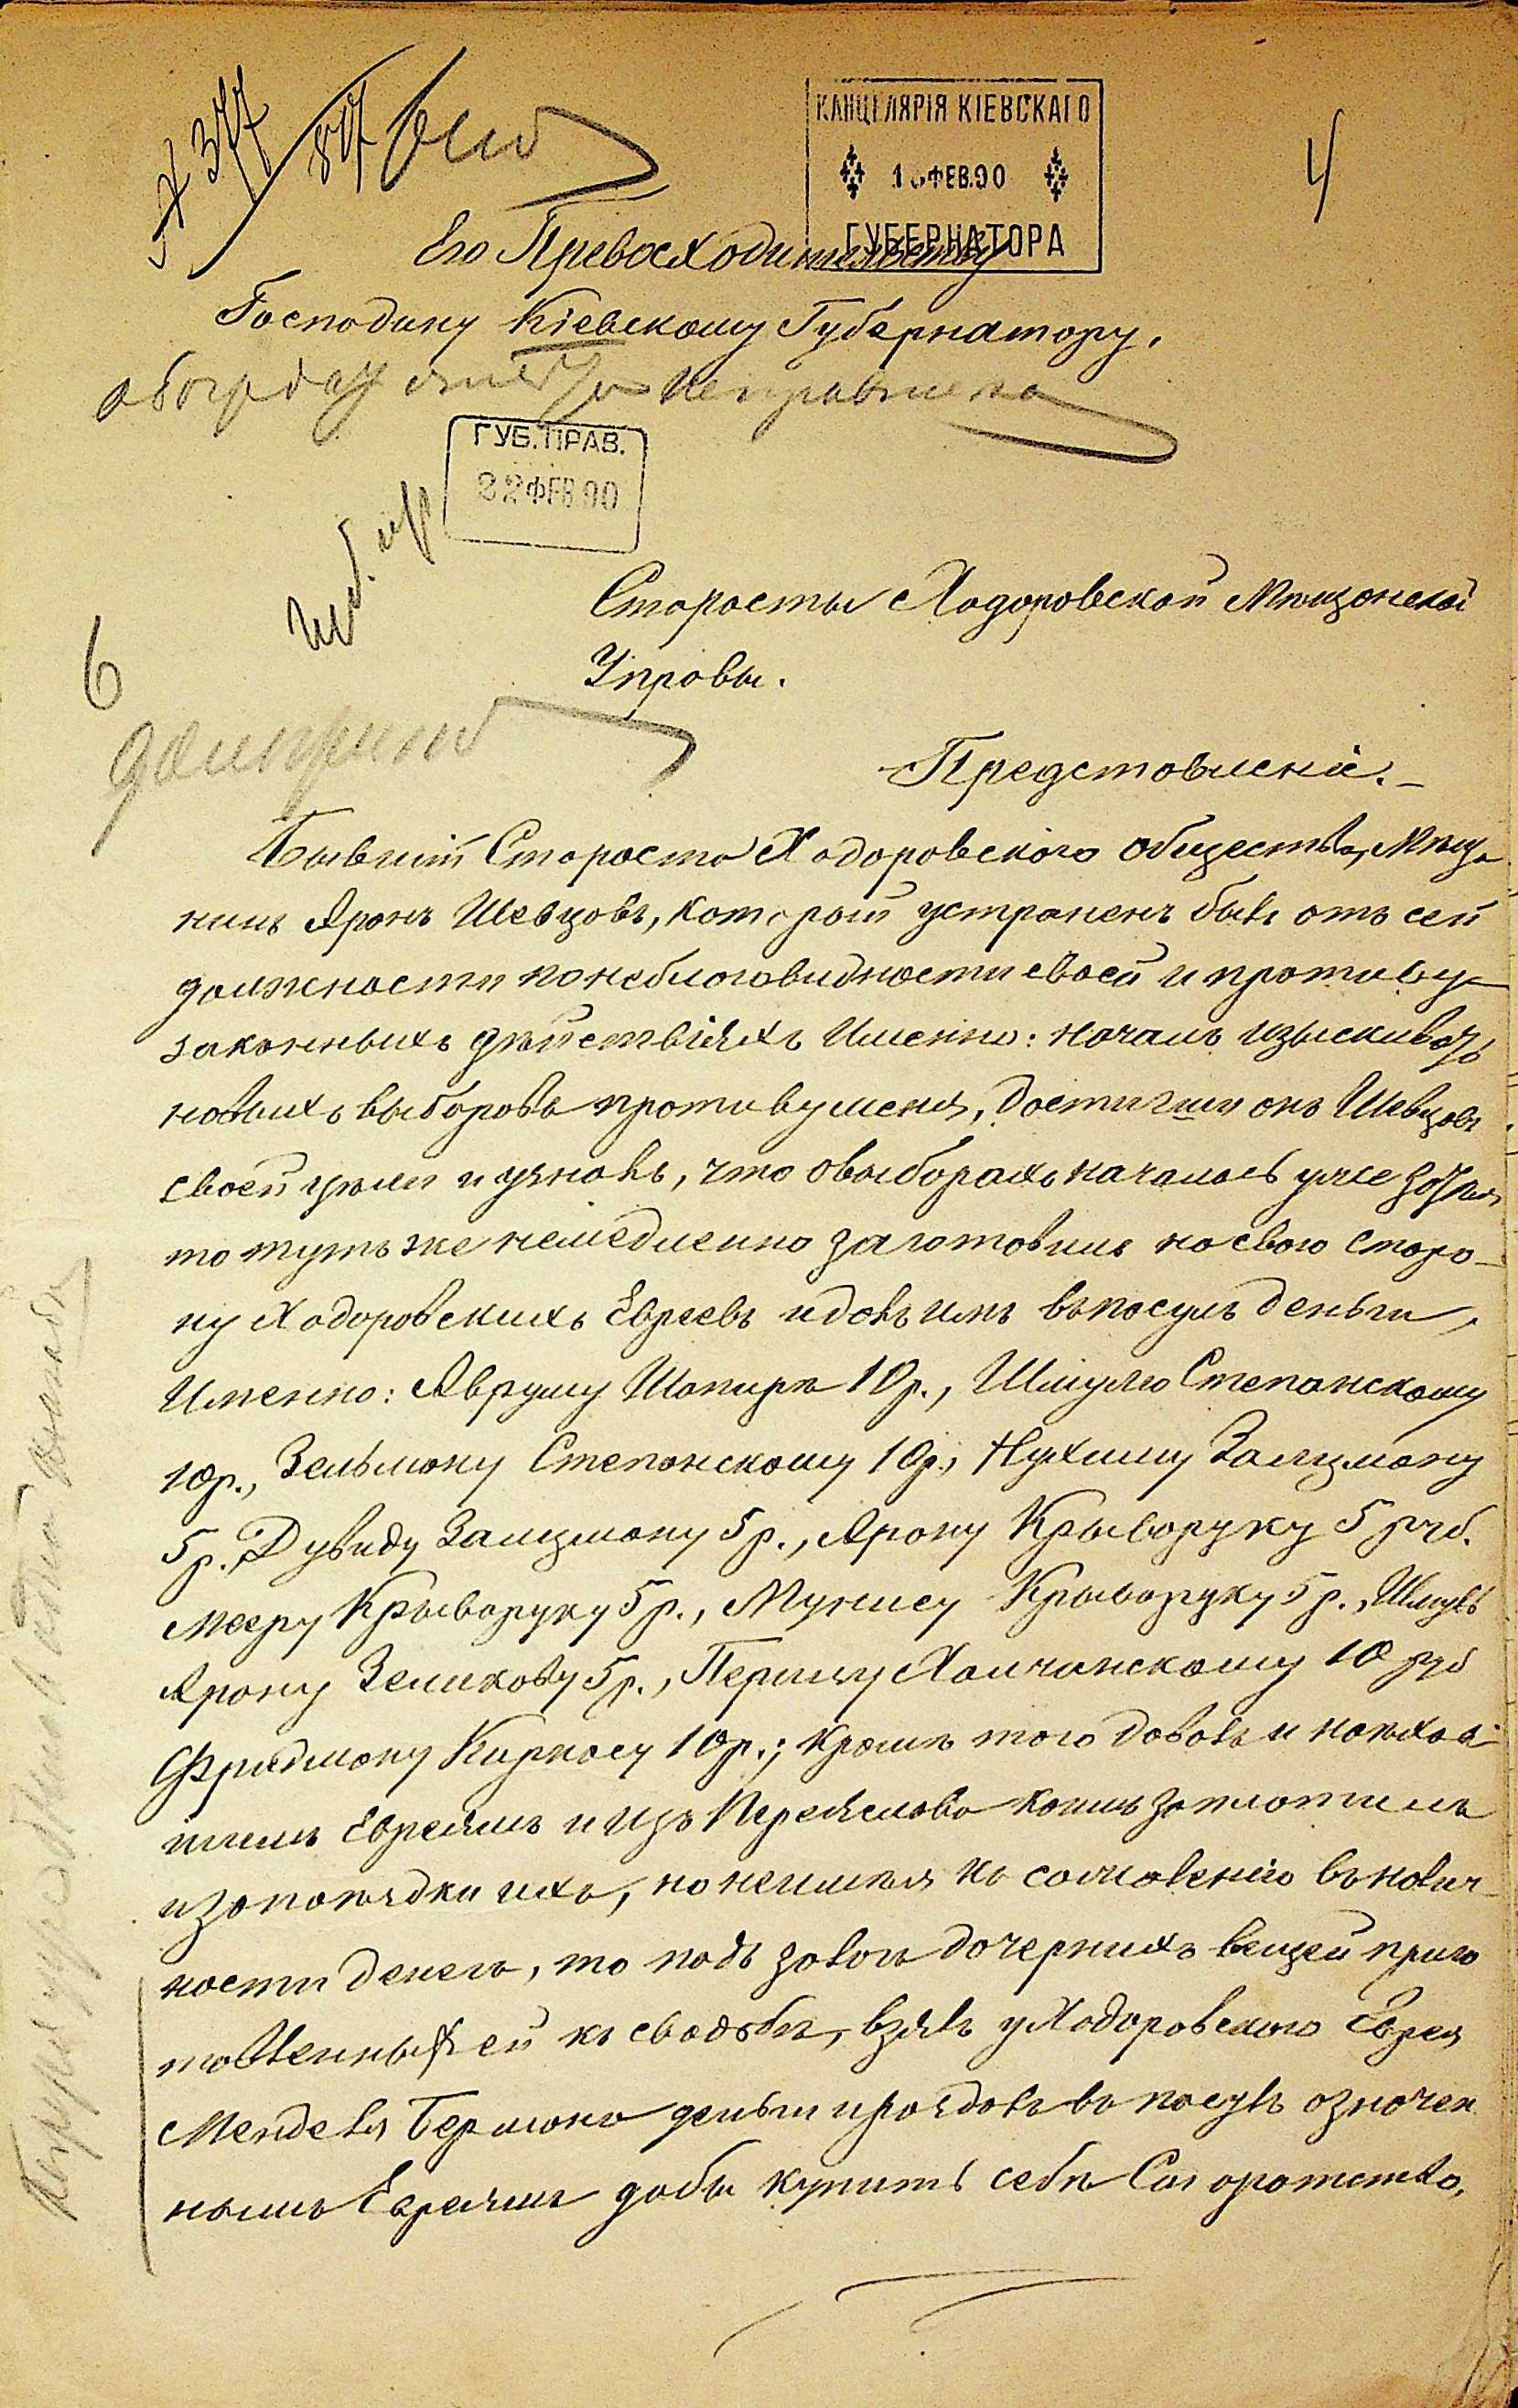 КАНЦЕЛЯРІЯ КІЕВСКАГО
ФЕВ.90
ГУБЕРНАТОРА
4
Его Превосходительству
Господину Кіевскому Губернатору.
ГУБ. ПРАВ.
22 ФЕВ 90
6
Старосты Ходоровской Мѣщанской
Управы.
Представленіе.
Бывшій Староста Ходоровскаго общества, Мѣща
нинъ Аронъ Шевцовъ, который устраненъ былъ отъ сей
должности по неблаговидности своей и противу-
законныхъ дѣйствіяхъ именно: началъ изыскивать
новыхъ выборовъ противу меня, достигши онъ Шевцовъ
своей цѣли и узнавъ, что о выборахъ началось уже
то тутъ же немедленно заготовилъ на свою сторо-
ну Ходоровскихъ Евреевъ и давъ имъ въ посулъ деньги,
Именно: Авруму Шапирѣ 10 р., Шмулю Степанскому
10 р., Зельману Степанскому 10 р., Нухиму Залцману
5 р. Дувиду Залцману 5 р., Арону Крыворуку 5 руб.
Мееру Крыворуку 5 р., Мунису Крыворуку 5 р., Шмуль
Арону Зеликову 5 р., Першу Халчанскому 10 руб
Фридману Киркосу 10 р.; кромѣ того давалъ и
Евреямъ и изъ Переяслова коимъ заплатилъ
и за поѣздки ихъ, но неимѣя къ сожаленію въ налич-
ности денегъ, то подъ залогъ дочернихъ вещей приго
товленныхъ ей къ свадьбѣ, взялъ у Ходоровскаго Еврея
Менделя Бермана деньги и раздавъ въ посулъ означен
нымъ Евреямъ дабы купить себѣ Старостство,